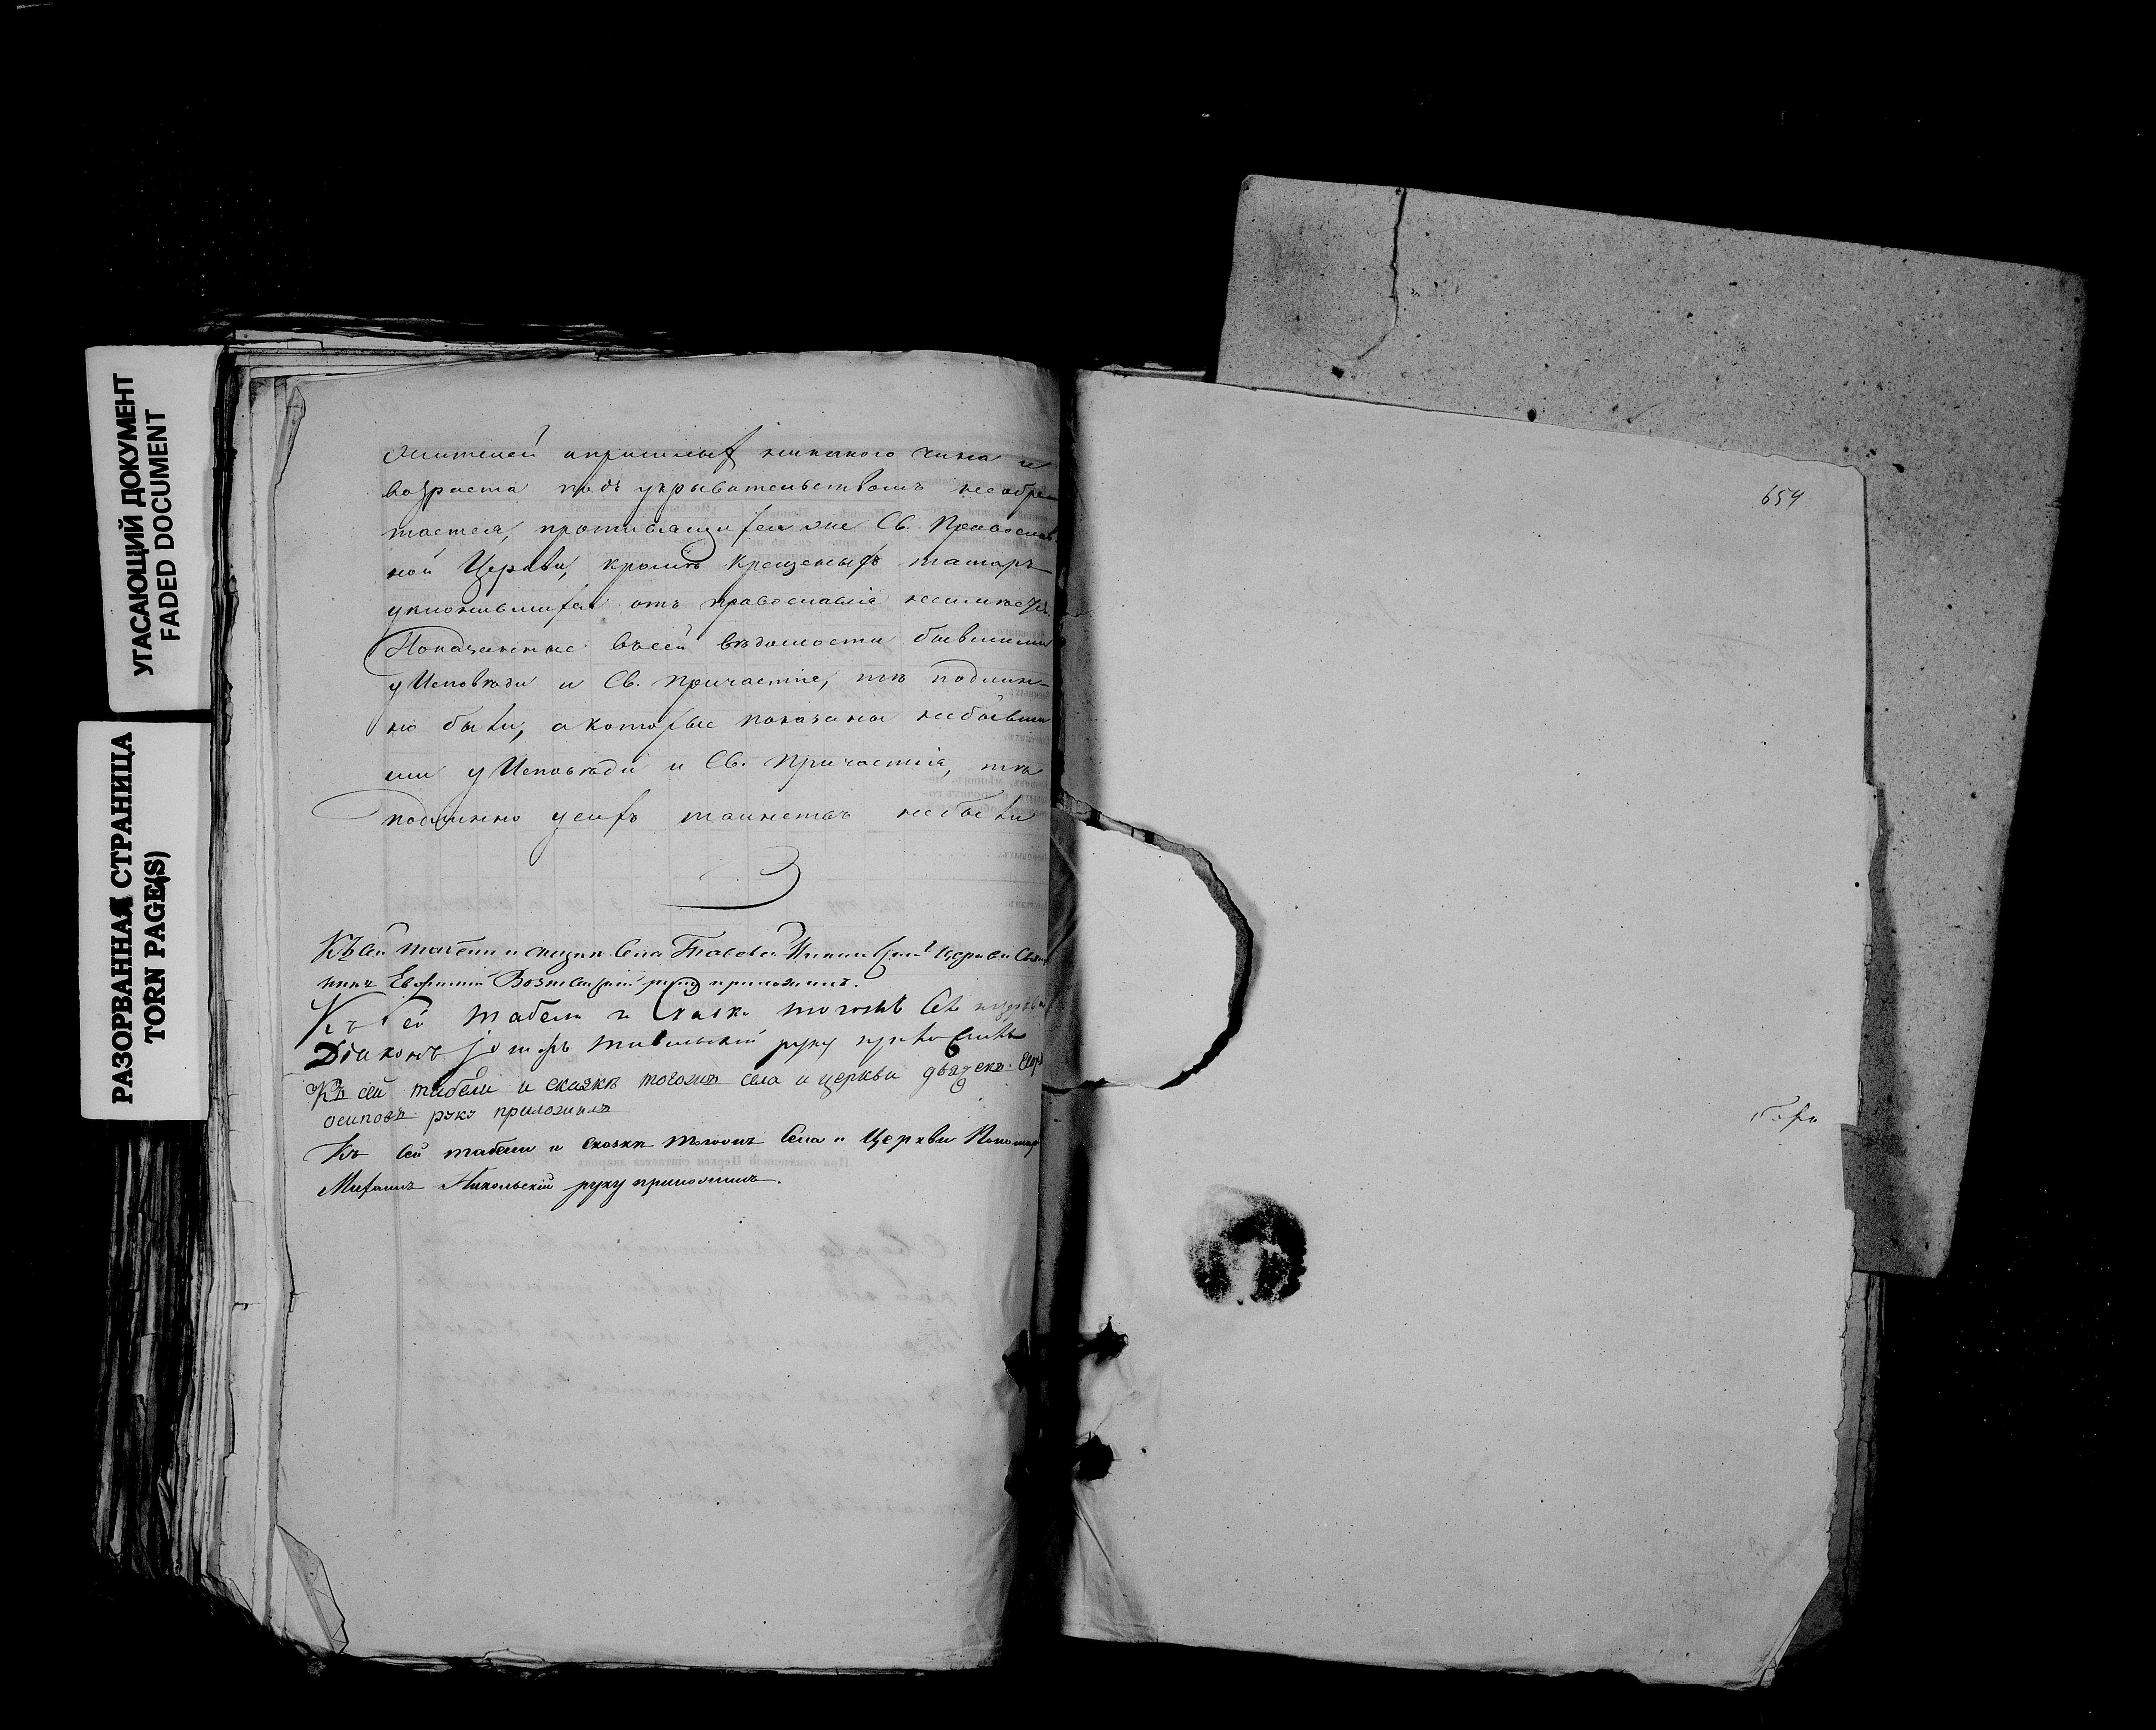 УГАСАЮЩИЙ ДОКУМЕНТ
FADED DOCUMENT
РАЗОРВАННАЯ СТРАНИЦА
TORN PAGE(S)
жителей ипришлыхъ никакого чина и
возраста подъ укрывательствомъ необре-
тается, противящихся же Св. Православ
ной Церкви, кромѣ крещеныхъ татаръ
уклонившихся отъ православія неимѣется.
Показанные въсей вѣдомости бывшими
у Исповѣди и Св. Причастія, тѣ подлин-
но были, а которые показаны небывши
ми у Исповѣди и Св. Причастія, тѣ
подлинно усихъ таинствъ небыли
Къ сей табели и сказкѣ Села Церкви Свящ
никъ Евфимій руку приложилъ.
Къ сей табели и Сказкѣ тогожъ Села
Діаконъ руку приложилъ
Къ сей табели и сказкѣ тогожъ села и церкви дьячекъ
осиповъ руку приложилъ
Къ сей табели и сказкѣ тогожъ Села и Церкви Пономарь
Михаилъ Никольскій руку приложилъ.
654